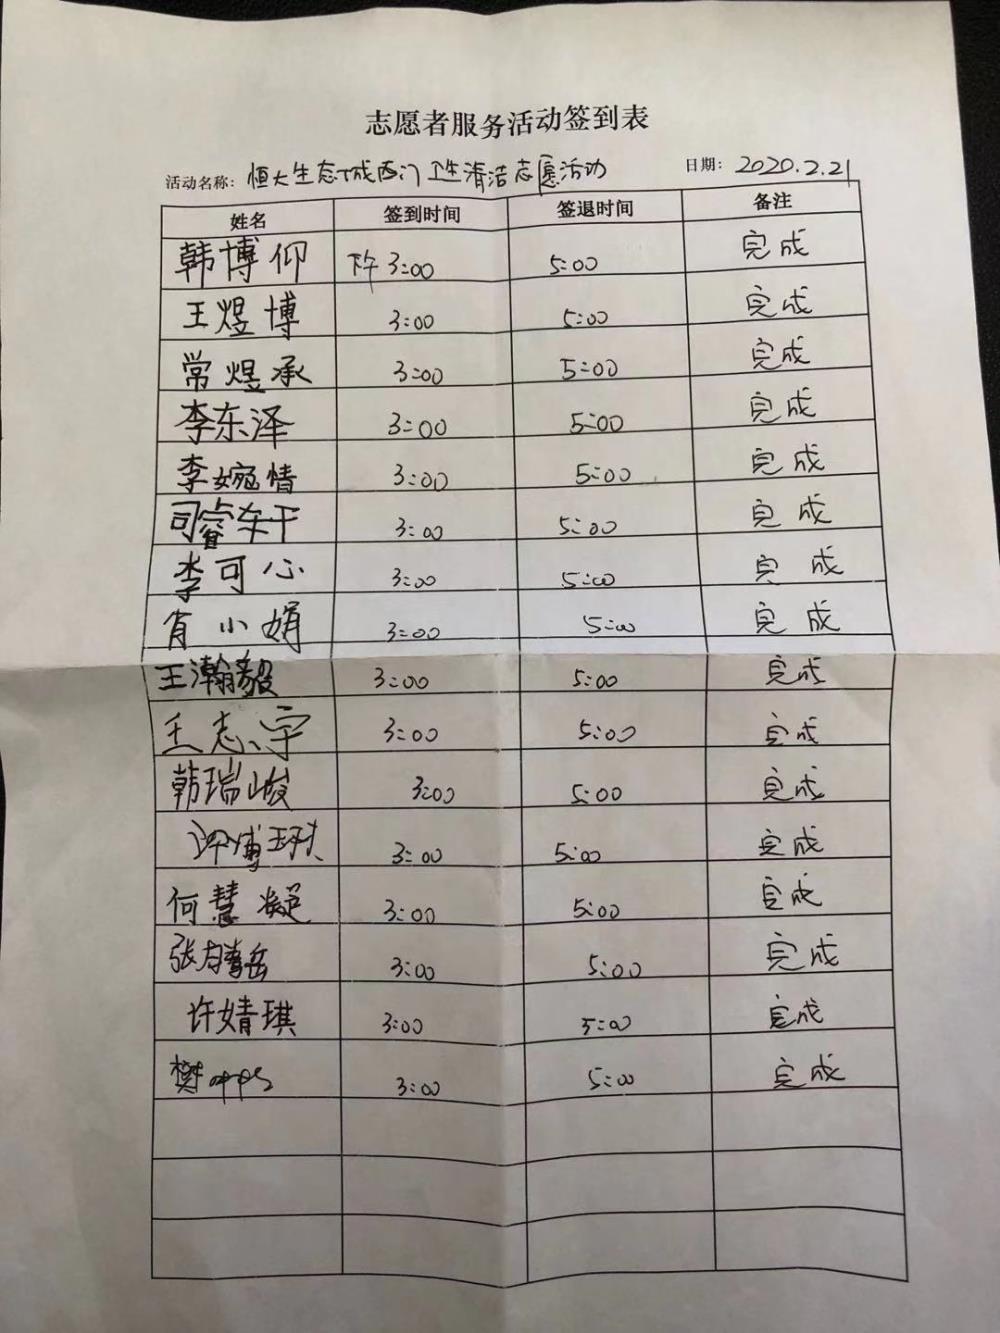 志愿者服务活动签到表
活动名称：恒大生态城西门卫生清洁志愿活动 日期：2020.2.21
姓名 签到时间 签退时间 备注
韩博仰 下午3:00 5:00 完成
王煜博 3:00 5:00 完成
常煜承 3:00 5:00 完成
李东泽 3:00 5:00 完成
李婉情 3:00 5:00 完成
司睿 3:00 5:00 完成
李可心 3:00 5:00 完成
肖小娟 3:00 5:00 完成
王瀚毅 3:00 5:00 完成
王志宇 3:00 5:00 完成
韩瑞峻 3:00 5:00 完成
3:00 5:00 完成
何慧凝 3:00 5:00 完成
张腾岳 3:00 5:00 完成
许婧琪 3:00 5:00 完成
3:00 5:00 完成